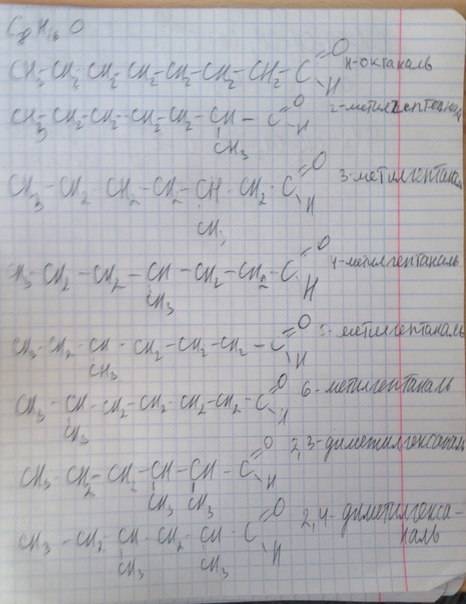 C₈H₁₆O
CH₃-CH₂-CH₂-CH₂-CH₂-CH₂-CH₂-C=O H н-октаналь
CH₃-CH₂-CH₂-CH₂-CH₂-CH-C=O H 2-метилгептаналь
CH₃
CH₃-CH₂-CH₂-CH₂-CH-CH₂-C=O H 3-метилгептаналь
CH₃
CH₃-CH₂-CH₂-CH-CH₂-CH₂-C=O H 4-метилгептаналь
CH₃
CH₃-CH₂-CH-CH₂-CH₂-CH₂-C=O H 5-метилгептаналь
CH₃
CH₃-CH-CH₂-CH₂-CH₂-CH₂-C=O H 6-метилгептаналь
CH₃
CH₃-CH₂-CH₂-CH-CH-C=O H 2,3-диметилгексаналь
CH₃ CH₃
CH₃-CH₂-CH-CH₂-CH-C=O H 2,4-диметилгекса-
наль
CH₃ CH₃